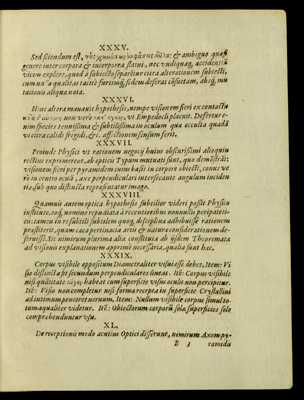 XXXV.
Sed sciendum est, & ambiguo quasi
genere inter corpora & incorporea statui, nec undiquaq; accidentiū
vicem explere, quod à subiecto separetur citra alterationem subiecti,
cum
tatione aliqua nota.
XXXVI.
Huic altera innuitur hypothesis, nempe visionem fieri ex contactu
non ut Empedocli placuit. Defertur e-
nim species tenuissima & subtilissima in oculum qua occulta quadā
vi citra calidi frigidi, &c. affectionem sensum ferit.
XXXVII.
Proinde Physici vt rationem negocij huius obscurissimi aliquoin
rectius exprimerent, ab opticis Typum mutuati sunt, quo demōstrāt:
visionem fieri per pyramidem cuius basis in corpore obiecto, conus ve-
rò in centro oculi, axe perpendiculari intersecante angulum inciden
tiæ, sub quo distinctè repræsentatur imago.
XXXVIII.
Quamuis autem optica hypothesis subtilior videri possit Physicu
instituto, seq; nomine repudiata à recentioribus nonnullis peripateti-
cis: tamen in re subtili subtilem quoq; disceptationem adhibuisse rationem
præstiterit, quam cæca pertinacia artis & naturæ considerationem de-
struisse. Sit nimirum plurima alia constituta ab ijsdem Theoremata
ad visionis explanationem apprimè necessaria, qualia sunt hæc,
XXXIX.
Corpus visibile oppositum Diametraliter visui esse debet, Item: Vi
sio distincta fit secundum perpendiculares lineas. Itē: Corpus visibile
nisi quilitate habeat cum superficie visus oculo non percipitur.
Itē: Visio non completur nisi forma recepta in superficie Crystallini
ad intimum penetret neruum, Item: Nullum visibile corpus simul to-
tum æqualiter videtur. Itē: Obiectorum corporū sola superficies sole
comprehenduntur visu.
XL.
De receptionis modo acutius Optici disserunt, nimirum Axem py-
B 3 ramida